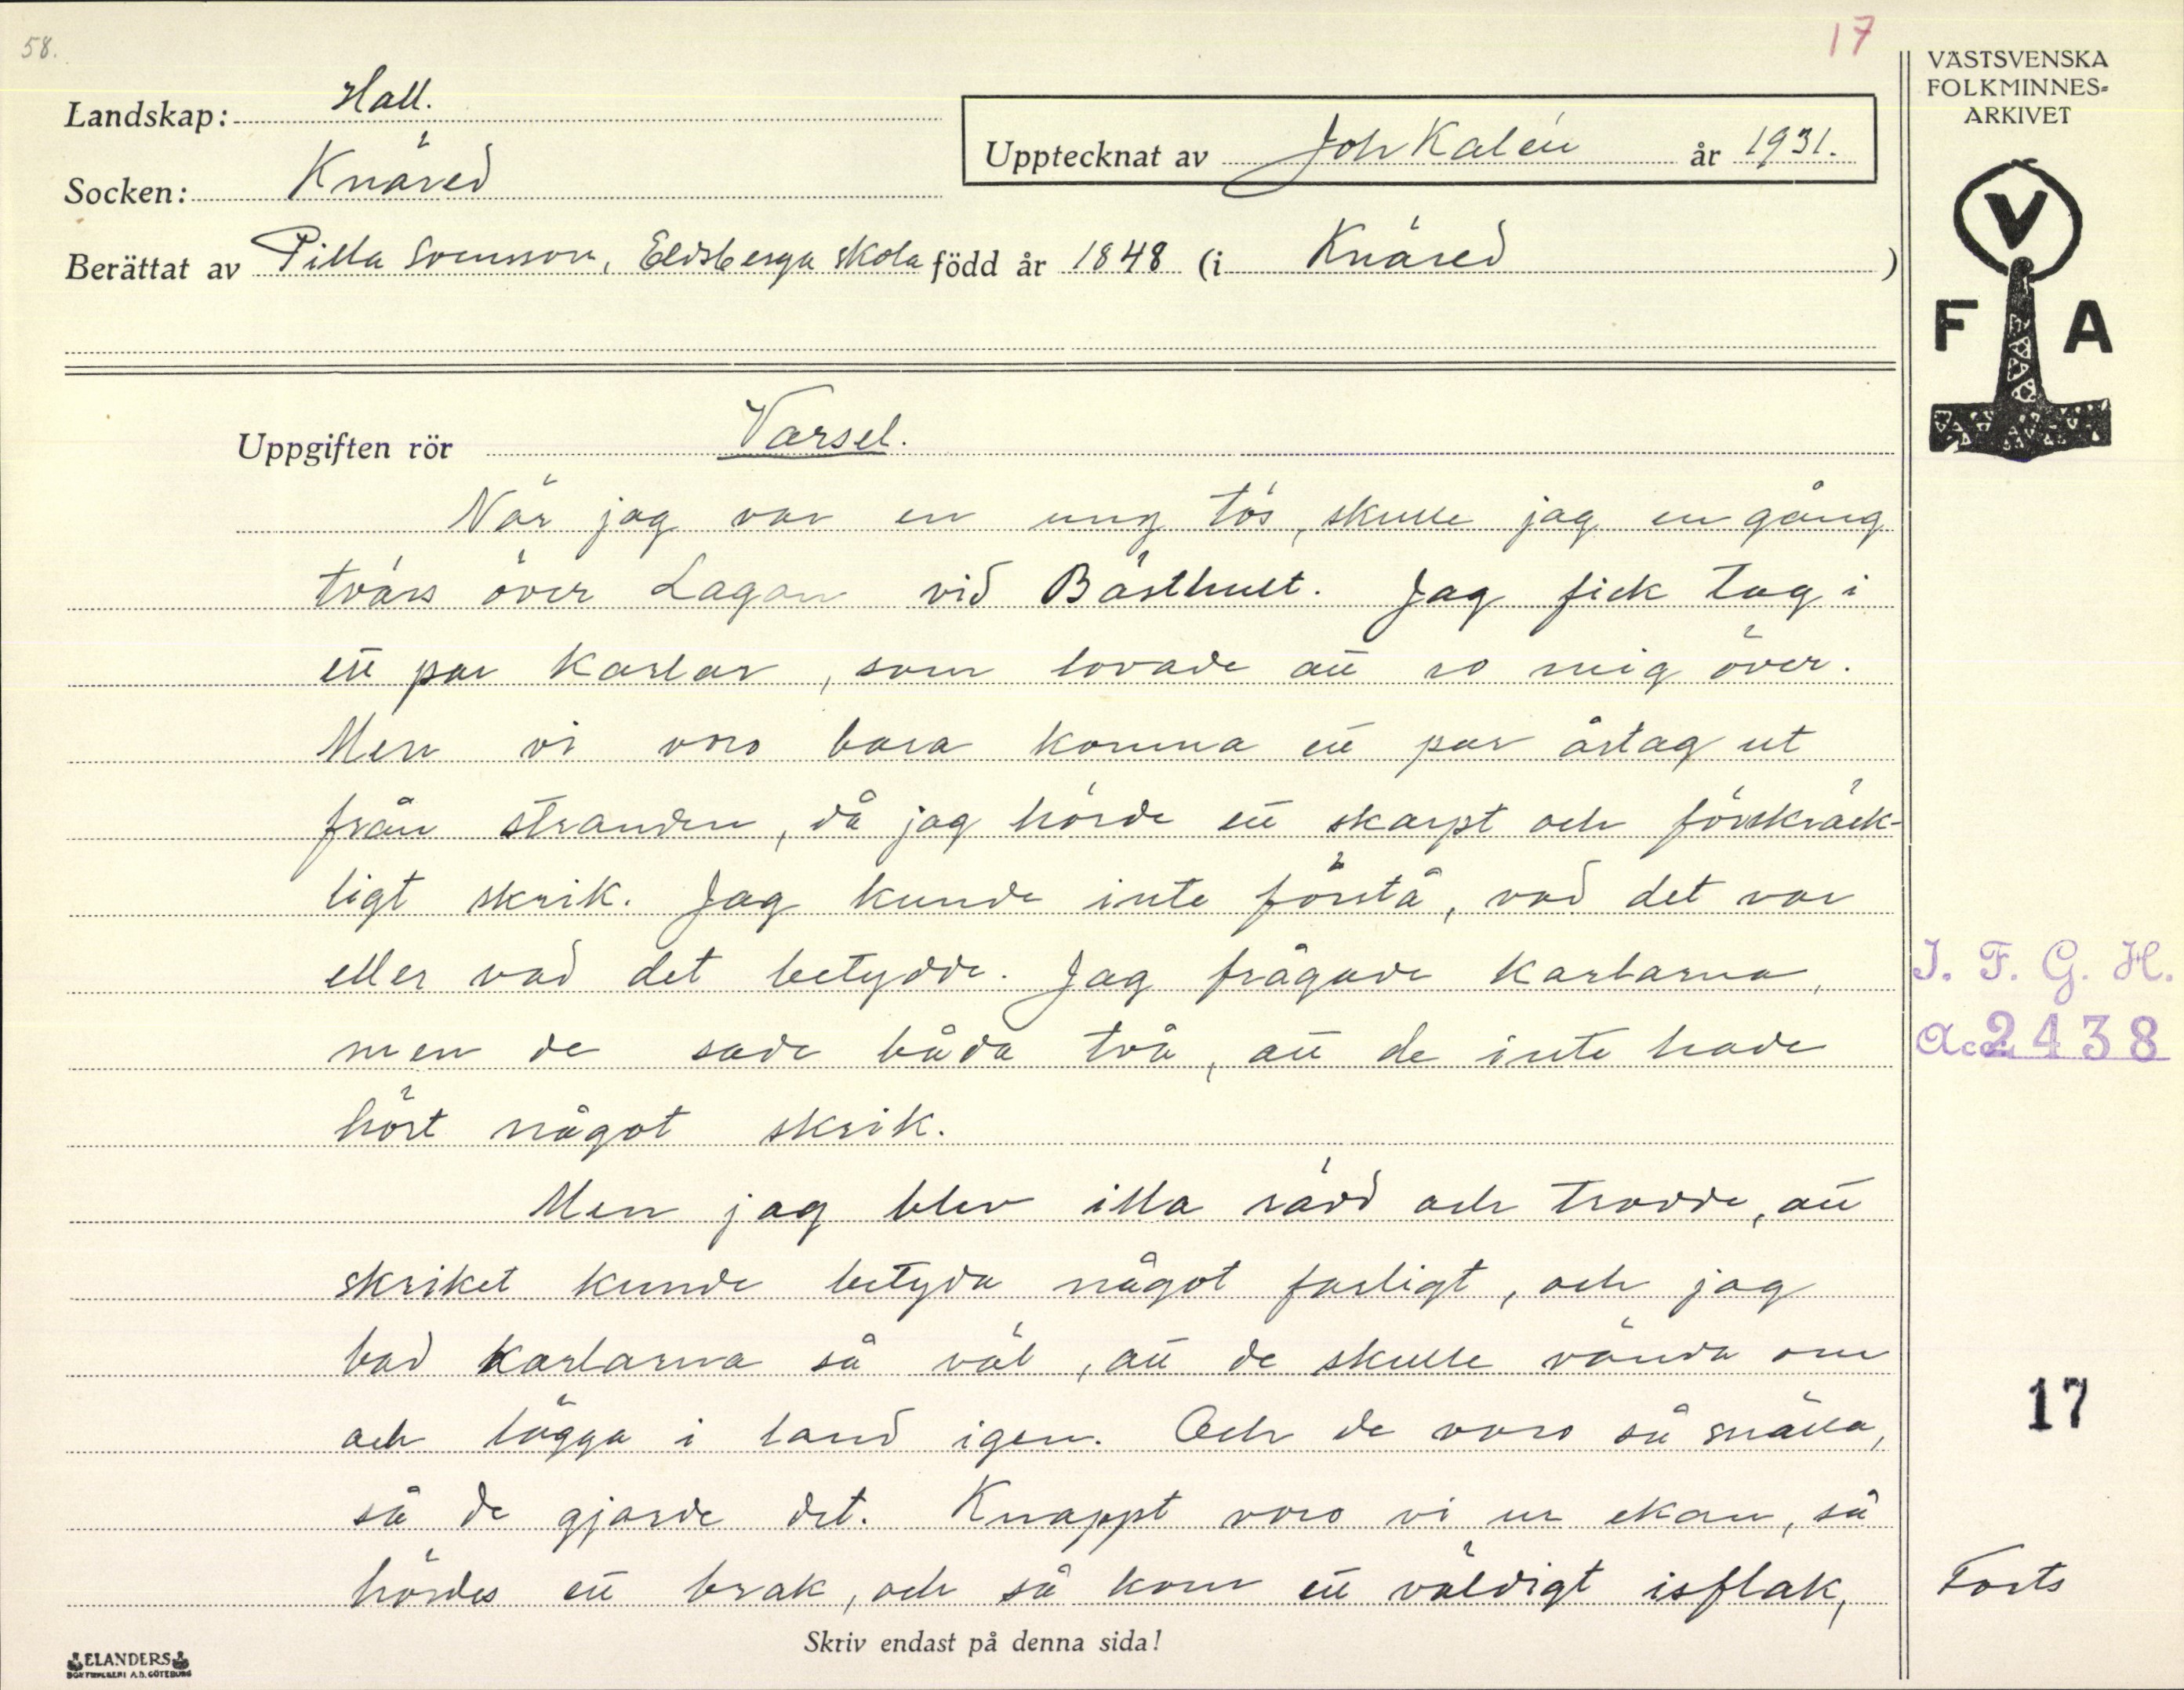 58.
17
Landskap: Hall.
Upptecknat av Joh Kalén år 1931.
Socken: Knäred
Berättat av Pilla Svensson, Eldsberga skola född år 1848 (i Knäred)
VÄSTSVENSKA
FOLKMINNES-
ARKIVET
V
F A
Uppgiften rör Varsel.
När jag var en ung tös, skulle jag en gång
tvärs över Lagan vid Bästhult. Jag fick tag i
ett par karlar, som lovade att ro mig över.
Men vi voro bara komna ett par årtag ut
från stranden, då jag hörde ett skarpt och förskräck-
ligt skrik. Jag kunde inte förstå, vad det var
eller vad det betydde. Jag frågade karlarna,
men de sade båda två, att de inte hade
hört något skrik.
Men jag blev illa rädd och trodde, att
skriket kunde betyda något farligt, och jag
bad karlarna så väl, att de skulle vända om
och lägga i land igen. Och de voro så snälla,
så de gjorde det. Knappt voro vi ur ekan, så
hördes ett brak, och så kom ett väldigt isflak,
I. F. G. H.
Acc. 2438
17
Forts
Skriv endast på denna sida!
ELANDERS
BOKTRYCKERI A.B. GÖTEBORG